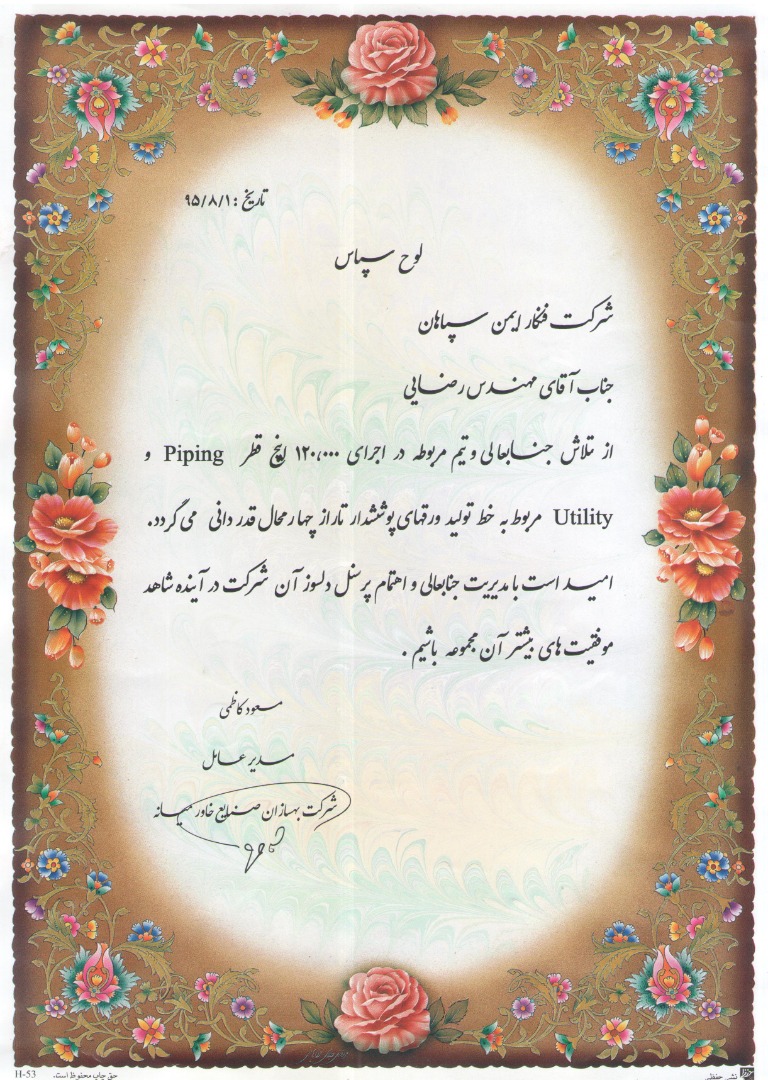 تاریخ : ۹۵/۸/۱
لوح سپاس
شرکت فنکار ایمن سپاهان
جناب آقای مهندس رضایی
از تلاش جنابعالی و تیم مربوطه در اجرای ۱۲۰،۰۰۰ اینچ قطر Piping و
Utility مربوط به خط تولید ورقهای پوششدار تاراز چهارمحال قدر دانی می گردد.
امید است با مدیریت جنابعالی و اهتمام پرسنل دلسوز آن شرکت در آینده شاهد
موفقیت های بیشتر آن مجموعه باشیم .
مسعود کاظمی
مدیر عامل
شرکت بهسازان صنایع خاور میانه
نشر حفظ
حق چاپ محفوظ است.
H-53